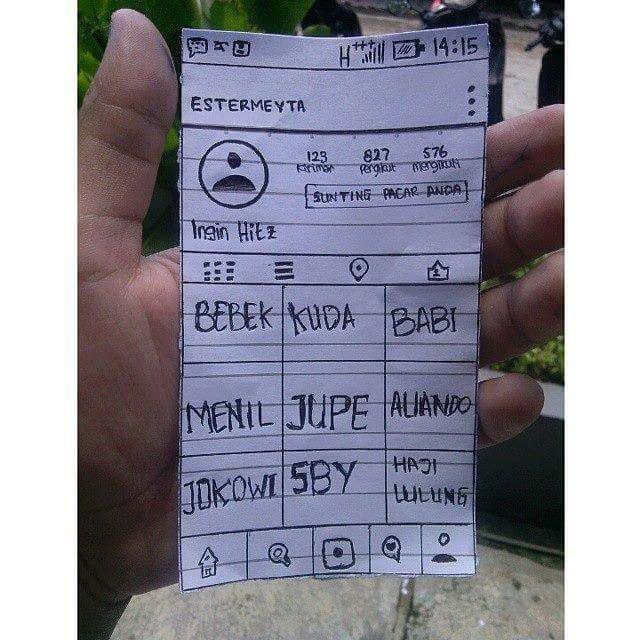 H+++ 14:15
ESTERMEYTA
123 827 576
kiriman pengikut mengikuti
SUNTING PACAR ANDA
Ingin Hitz
BEBEK KUDA BABI
MENIL JUPE ALIANDO
JOKOWI SBY HAJI
LULUNG